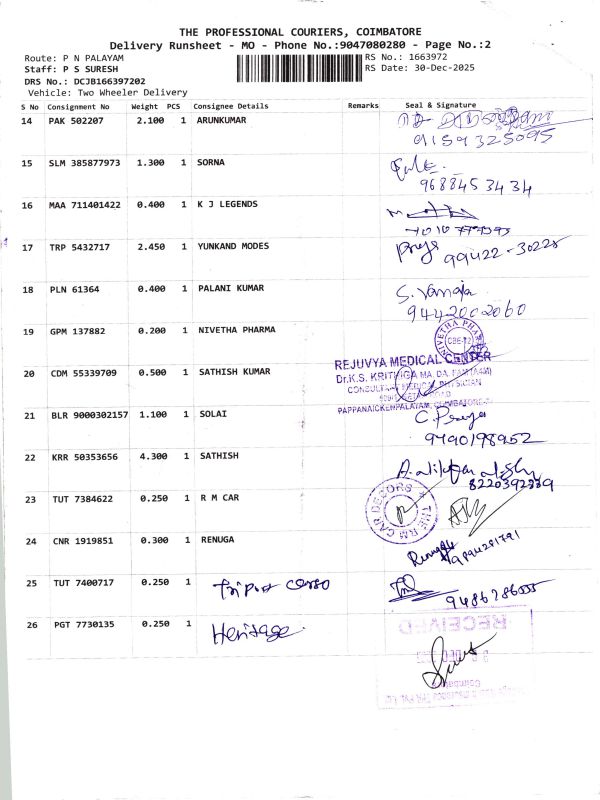 THE PROFESSIONAL COURIERS, COIMBATORE
Delivery Runsheet - MO - Phone No.:9047080280 - Page No.:2
Route: P N PALAYAM RS No.: 1663972
Staff: P S SURESH RS Date: 30-Dec-2025
DRS No.: DCJB166397202
Vehicle: Two Wheeler Delivery
S No Consignment No Weight PCS Consignee Details Remarks Seal & Signature
14 PAK 502207 2.100 1 ARUNKUMAR
9159325095
15 SLM 385877973 1.300 1 SORNA
9688453434
16 MAA 711401422 0.400 1 K J LEGENDS
17 TRP 5432717 2.450 1 YUNKAND MODES
99422-30225
18 PLN 61364 0.400 1 PALANI KUMAR
9442002060
19 GPM 137882 0.200 1 NIVETHA PHARMA
NIVETHA PHARMA
REJUVYA MEDICAL CENTER
20 CDM 55339709 0.500 1 SATHISH KUMAR
Dr.K.S. KRITHIGA MA, DA, FAM (A4M)
PAPPANAICKENPALAYAM, COIMBATORE
21 BLR 9000302157 1.100 1 SOLAI
9790198952
22 KRR 50353656 4.300 1 SATHISH
8220392889
23 TUT 7384622 0.250 1 R M CAR
THE RM CAR DECORS
24 CNR 1919851 0.300 1 RENUGA
Renuga
25 TUT 7400717 0.250 1
9486286555
26 PGT 7730135 0.250 1 Heritage
RECEIVED